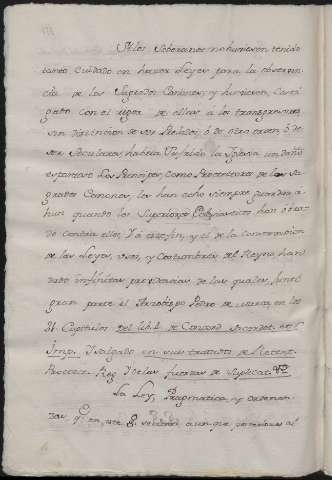 Si los Soberanos no hubiesen tenido
tanto cuidado en hacer Leyes para la observan
cia de los Sagrados Canones, y hubiesen casti
gado con el rigor de ellas a los transgresores
sin distincion de ser Prelados, ó de otro orden, ó de
ser Seculares, habria la Iglesia un daño
Los Principes, como Protectores de los Sa
grados Canones, los han echo siempre guardar a
hun quando los Superiores Eclesiasticos han obra
do contra ellos, Y á este fin, y el de la conservacion
de las Leyes, usos, y Costumbres del Reyno, han
dado infinitas providencias de las quales junté
gran parte el Arzobispo Pedro de Marca, en los
21. Capitulos del lib. 4. de Concord. Sacerdot. et
Imp. Y Salgado en sus tratados de Retent.
Protect. Reg. Y de las fuerzas de Suplicat.
La Ley, Pragmatica, y Ordenan
zas q.e en este aunque al